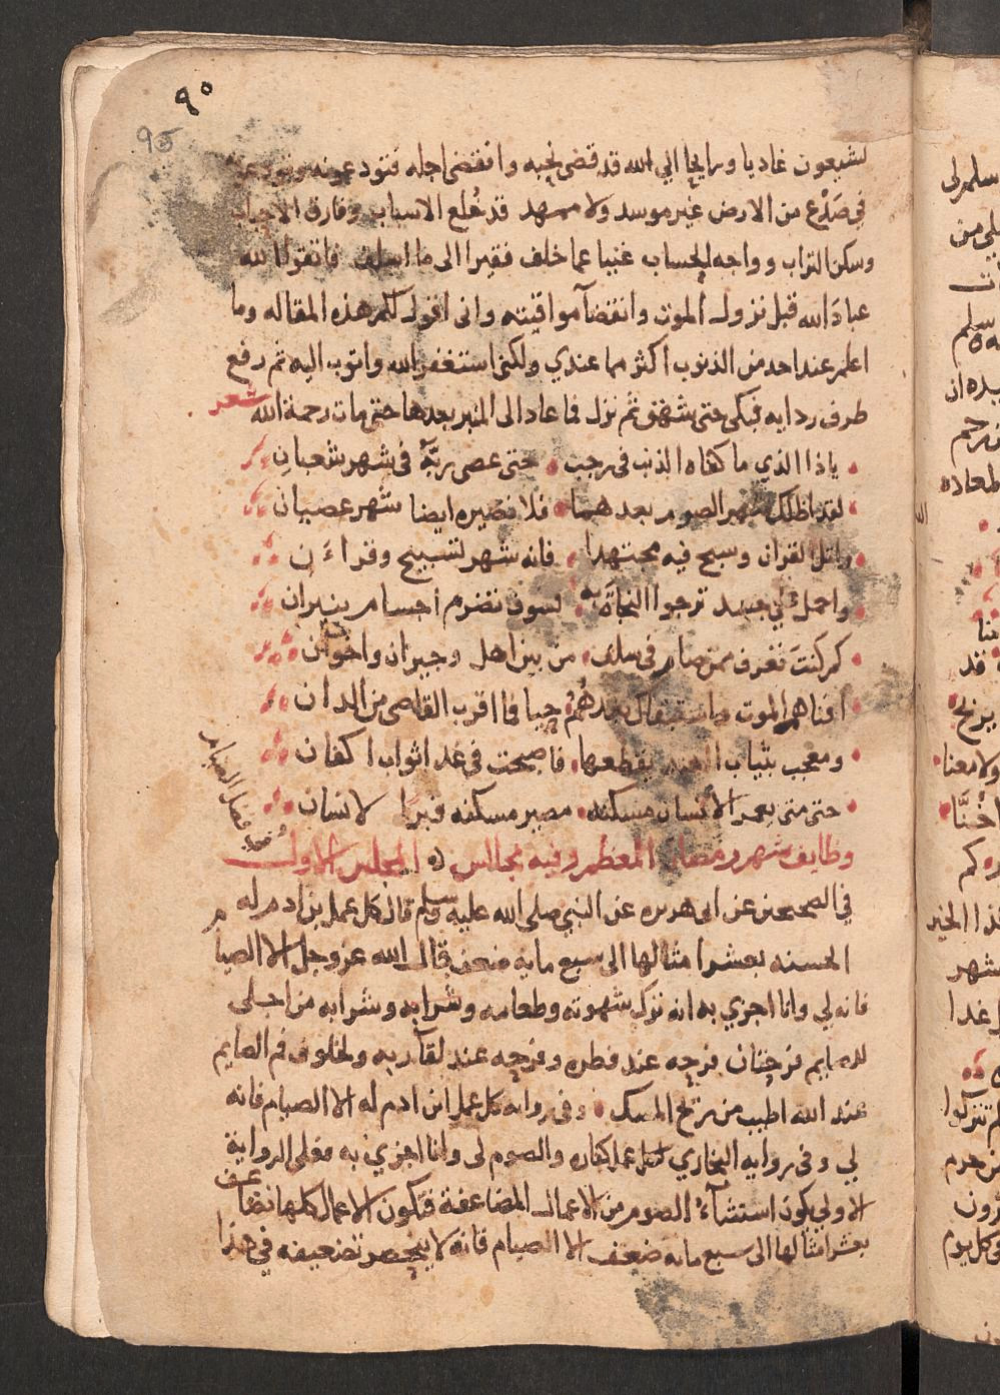 ٩٠
95
تشيعون غاديا ورايحا الي الله قد قضى نحبه وانقضى اجله فتودعونه وتدعونه
في صَدْع من الارض غير موسد ولا ممهد قد خُلع الاسباب وفارق الاحباب
وسكن التراب وواجه الحساب غنيا عما خلف فقيرا الى ما اسلف فاتقوا الله
عبادَ الله قبل نزول الموت وانقضآ مواقيته واني اقول لكم هذه المقاله وما
اعلم عند احد من الذنوب اكثر مما عندي ولكني استغفر الله واتوب اليه ثم رفع
طرف ردايه فبكى حتى شهق ثم نزل فما عاد الى المنبر بعدها حتى مات رحمة الله شعر
ياذا الذي ما كفاه الذنب في رجب حتى عصى ربَّهُ في شهر شعبان
لقد اظلك شهر الصوم بعدهما فلا تصيره ايضا شهر عصيان
واتل القران وسبح فيه مجتهدا فانه شهر تسبيح وقراءَن
واحمل على جسد ترجوا النجاة به لسوف تضرم اجسام بنيران
كم كنتَ تعرف ممن صام في سلف من بين اهل وجيران واخوان
افناهم الموت واستبقاك بعدهُمُ حيا فما اقرب القاصي من الدان
ومعجب بثياب العيد يقطعها فاصبحت في غد اثواب اكفان
حتى متى يعمر الانسان مسكنه مصير مسكنه قبرا لانسان
فضل الصيام
وظايف شهر رمضان المعظم وفيه مجالس المجلس الاول
في الصحيحين عن ابى هريره عن النبي صلى الله عليه وسلم قال كل عمل بن ادم له
الحسنه بعشر امثالها الى سبع مايه ضعف قال الله عز وجل الا الصيام
فانه لي وانا اجزي به انه ترك شهوته وطعامه وشرابه وشرابه من اجلى
للصايم فرحتان فرحه عند فطره وفرحه عند لقآ ربه ولخلوف فم الصايم
عند الله اطيب من ريح المسك وفي روايه كل عمل ابن ادم له الا الصيام فانه
لي وفي روايه البخاري لكل عمل كفاره والصوم لى وانا اجزي به فعلى الرواية
الاولي يكون استثنآءُ الصوم من الاعمال المضاعفة فتكون الاعمال كلها تضاعف
بعشر امثالها الى سبع مايه ضعف الا الصيام فانه لا ينحصر تضعيفه في هذا